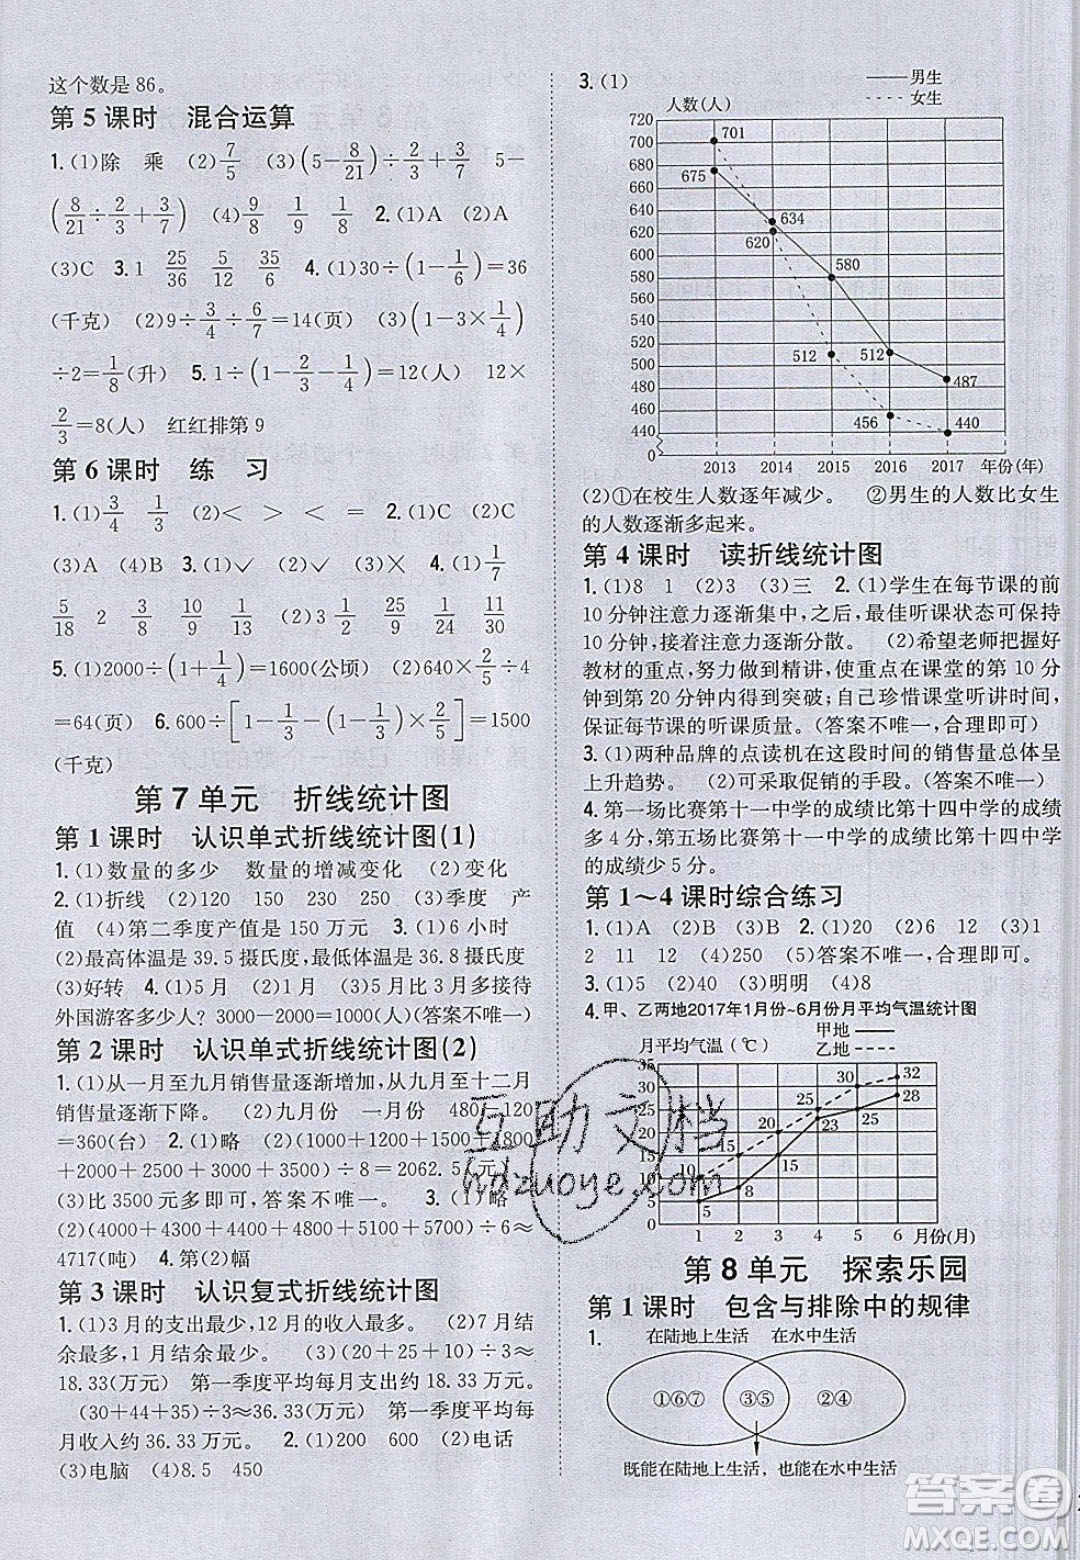 这个数是 86。
第 5 课时　混合运算
1.(1)除　乘　(2)7/5　(3)(5－8/21)÷2/3＋3/7　5－
(8/21÷2/3＋3/7)　(4)9/8　1/9　1/8　2.(1)A　(2)A
(3)C　3.1　25/36　5/12　35/6　4.(1)30÷(1－1/6)＝36
(千克)　(2)9÷3/4÷6/7＝14(页)　(3)(1－3×1/4)
÷2＝1/8(升)　5.1÷(1－2/3－1/4)＝12(人)　12×
2/3＝8(人)　红红排第 9
第 6 课时　练　习
1.(1)3/4　1/3　(2)＜　＞　＜　＝　2.(1)C　(2)C
(3)A　(4)B　3.(1)✓　(2)✓　(3)×　4.(1)1/7
5/18　2　3/8　(2)9/20　1/3　4/9　4/15　11/30
5.(1)2000÷(1＋1/4)＝1600(公顷)　(2)640×2/5÷4
＝64(页)　6.600÷[1－1/3－(1－1/3)×2/5]＝1500
(千克)
第 7 单元　折线统计图
第 1 课时　认识单式折线统计图(1)
1.(1)数量的多少　数量的增减变化　(2)变化
2.(1)折线　(2)120　150　230　250　(3)季度　产
值　(4)第二季度产值是 150 万元　3.(1)6 小时
(2)最高体温是 39.5 摄氏度,最低体温是 36.8 摄氏度
(3)好转　4.(1)5 月　(2)1 月　(3)5 月比 3 月多接待
外国游客多少人? 3000－2000＝1000(人)(答案不唯一)
第 2 课时　认识单式折线统计图(2)
1.(1)从一月至九月销售量逐渐增加,从九月至十二月
销售量逐渐下降。　(2)九月份　一月份　480－120
＝360(台)　2.(1)略　(2)(1000＋1200＋1500＋1800
＋2000＋2500＋3000＋3500)÷8＝2062.5(元)
(3)比 3500 元多即可。答案不唯一。　3.(1)略
(2)(4000＋4300＋4400＋4800＋5100＋5700)÷6≈
4717(吨)　4.第(2)幅
第 3 课时　认识复式折线统计图
1.(1)3 月的支出最少,12 月的收入最多。　(2)7 月
结余最多,4 月结余最少。　(3)(20＋25＋10)÷3≈
18.33(万元)　第一季度平均每月支出约 18.33 万元。
(30＋44＋35)÷3≈36.33(万元)　第一季度平均每
月收入约 36.33 万元。　2.(1)200　600　(2)电话
(3)电脑　(4)8.5　450
3.(1)
男生
女生
人数(人)
720
700
680
660
640
620
600
580
560
540
520
500
480
460
440
701
675
634
620
580
512
512
487
456
440
2013　2014　2015　2016　2017　年份(年)
(2)①在校生人数逐年减少。　②男生的人数比女生
的人数逐渐多起来。
第 4 课时　读折线统计图
1.(1)8　1　(2)3　(3)三　2.(1)学生在每节课的前
10 分钟注意力逐渐集中,之后,最佳听课状态可保持
10 分钟,接着注意力逐渐分散。　(2)希望老师把握好
教材的重点,努力做到精讲,使重点在课堂的第 10 分
钟到第 20 分钟内得到突破;自己珍惜课堂听讲时间,
保证每节课的听课质量。(答案不唯一,合理即可)
3.(1)两种品牌的点读机在这段时间的销售量总体呈
上升趋势。　(2)可采取促销的手段。(答案不唯一)
4.第一场比赛第十一中学的成绩比第十四中学的成绩
多 4 分,第五场比赛第十一中学的成绩比第十四中学
的成绩少 5 分。
第 1～4 课时综合练习
1.(1)A　(2)B　(3)B　2.(1)20　(2)6　12　(3)1
2　11　12　(4)2　(5)答案不唯一,合理即可。
3.(1)5　(2)40　(3)明明　(4)8
4.甲、乙两地2017年1月份~6月份月平均气温统计图
甲地
月平均气温（℃）　乙地
35
30
25
20
15
10
5
0
10
15
20
25
30
32
5
8
15
23
25
28
1　2　3　4　5　6　月份(月)
第 8 单元　探索乐园
第 1 课时　包含与排除中的规律
1.　在陆地上生活　在水中生活
①⑥⑦　③⑤　②④
既能在陆地上生活，也能在水中生活
互助文档
hdzuoye.com
答案圈
MXQE.COM